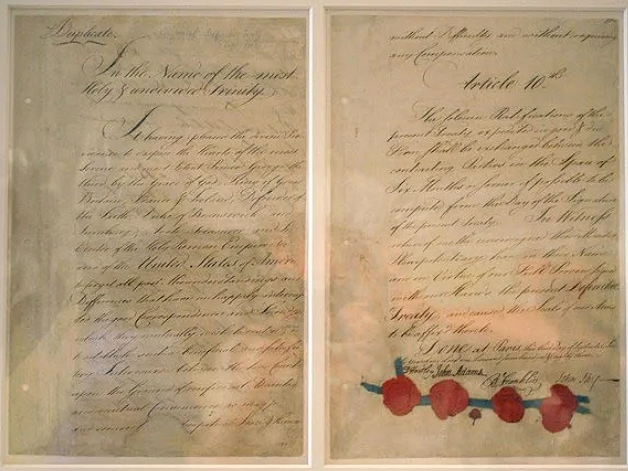 Duplicate.
In the Name of the most
Holy & undivided Trinity.
It having pleased the divine Pro
vidence to dispose the Hearts of the most
Serene and most Potent Prince George the
third, by the Grace of God, King of Great
Britain, France & Ireland, Defender of
the Faith, Duke of Brunswick and
Lunebourg, Arch Treasurer and
Elector of the Holy Roman Empire
and of the United States of America
to forget all past Misunderstandings and
Differences that have unhappily interrup
ted the good Correspondence and Friendship
which they mutually wish to restore
to establish such a beneficial and satisfac
tory Intercourse between the two Countries
upon the Ground of reciprocal Advantages
and mutual Convenience as may
and secure
without Difficulty and without requiring
any Compensation.
Article 10th
The solemn Ratifications of the
present Treaty expedited in good & due
Form shall be exchanged between the
contracting Parties in the Space of
Six Months or sooner if possible to be
computed from the Day of the Signature
of the present Treaty. In Witness
whereof we the undersigned their Ministers
Plenipotentiary have in their Name
and in Virtue of our Full Powers signed
with our Hands the present Definitive
Treaty, and caused the Seals of our Arms
to be affixed thereto.
Done at Paris, this third day of September
in the year of our Lord one thousand seven hundred & eighty three.
D Hartley John Adams B Franklin John Jay